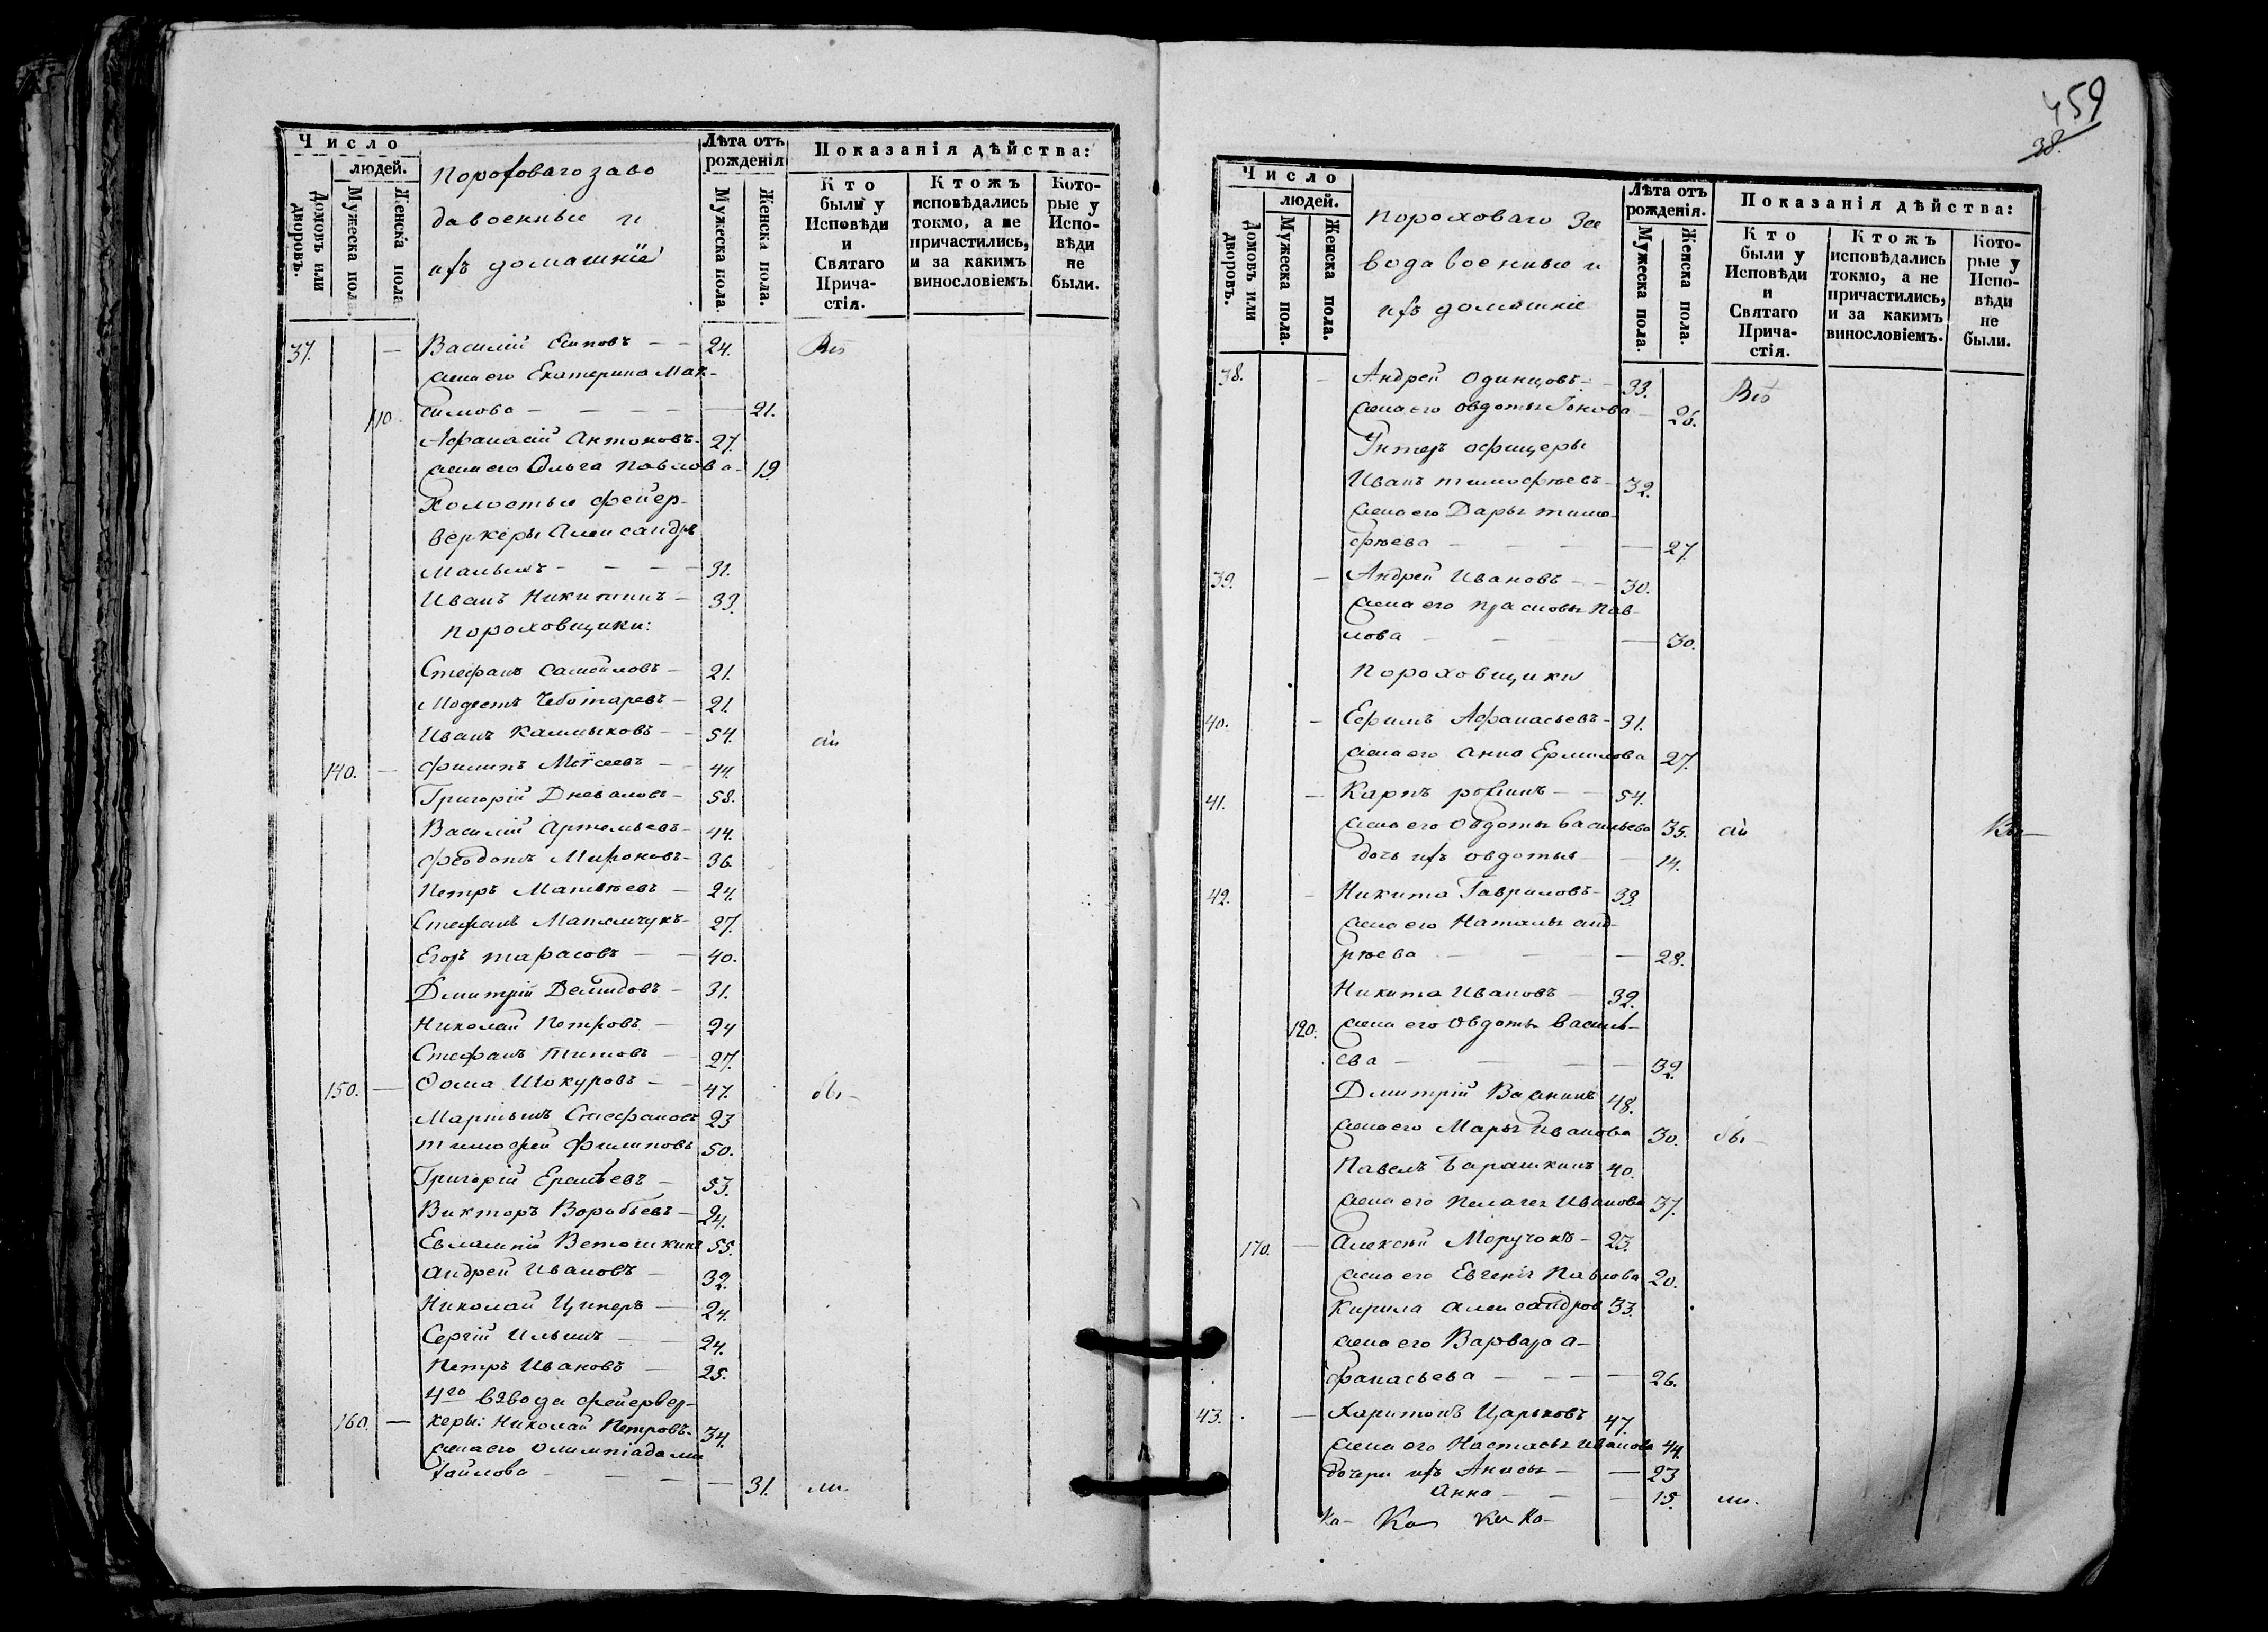 Число
людей.
Домовъ или дворовъ.
Мужеска пола.
Женска пола
Пороховаго заво
да военные и
ихъ домашніе
Лѣта отъ рожденія
Мужеска пола.
Женска пола.
Показанія дѣйства:
Кто были у Исповѣди и Святаго Причастія.
Ктожъ исповѣдались токмо, а не причастились, и за какимъ винословіемъ
Которые у Исповѣди не были.
37. — Василій Есиповъ — — 24. Вси
жена его Екатерина Мак-
110. симова — — — — 21.
Афанасій Антоновъ — 27.
жена его Ольга Павлова — 19
Холостые фейер-
веркеры Александръ
Малыхъ — — — — 31.
Иванъ Никитинъ — 33.
пороховщики:
Стефанъ Самойловъ — 21.
Модестъ Чеботаревъ — 21.
Иванъ Калмыковъ — — 54. сіи
140. — Филипъ Моѵсеевъ — — 44.
Григорій Дневаловъ — 58.
Василій Артемьевъ — 44.
Феодотъ Мироновъ — 36.
Петръ Матвѣевъ — 24.
Стефанъ Маталчукъ — 27.
Егоръ Тарасовъ — — 40.
Дмитрій Демидовъ — 31.
Николай Петровъ — 24
Стефанъ Титовъ — — 27.
150. — Фома Шокуровъ — — 47. бы-
Мартынъ Стефановъ 23
Тимофей Филиповъ 50.
Григорій Еремѣевъ — 53.
Викторъ Воробьевъ — 24.
Евлампій Ветошкинъ 55.
Андрей Ивановъ — 32.
Николай Циперъ — 24.
Сергій Ильинъ — — 24.
Петръ Ивановъ — 25.
4го взвода фейервер-
160. — керы: Николай Петровъ — 34.
жена его Олимпіада Ми
хайлова — — — — 31. ли.
459
38.
Число
людей.
Домовъ или дворовъ.
Мужеска пола.
Женска пола.
Пороховаго За
вода военные и
ихъ домашніе
Лѣта отъ рожденія.
Мужеска пола.
Женска пола.
Показанія дѣйства:
Кто были у Исповѣди и Святаго Причастія.
Ктожъ исповѣдались токмо, а не причастились, и за какимъ винословіемъ.
Которые у Исповѣди не были.
38. — Андрей Одинцовъ — — 33. Вси
жена его Овдотья Іонова — 26.
Унтеръ офицеры
Иванъ Тимофѣевъ — 32.
жена его Дарья Тимо-
фѣева — — — — 27.
39. — Андрей Ивановъ — — 30.
жена его Прасковья Пав-
лова — — — 30.
Пороховщики
40. — Ефимъ Афанасьевъ — 31.
жена его Анна Ермилова 27.
41. — Карпъ — — 54.
жена его Овдотья Васильева 35. сіи
дочь ихъ Овдотья — — 14.
42. — Никита Гавриловъ — 33.
жена его Наталья Анд-
рѣева — — — 28.
Никита Ивановъ — 32.
120. жена его Овдотья Василь-
ева — — — 32.
Дмитрій Васкинъ 48.
жена его Марья Иванова 30. бы-
Павелъ Барашкинъ 40.
жена его Пелагея Иванова 37.
170. — Алексѣй Моручокъ — 23.
жена его Евгенія Павлова 20.
Кирила Александров 33.
жена его Варвара А-
фанасьева — — — 26.
43. — Харитонъ Царьковъ 47.
жена его Настасья Иванова 44.
дочери ихъ Анисья — — 23
Анна — — — 15. ли.
Ка- Ка Ка Ка-